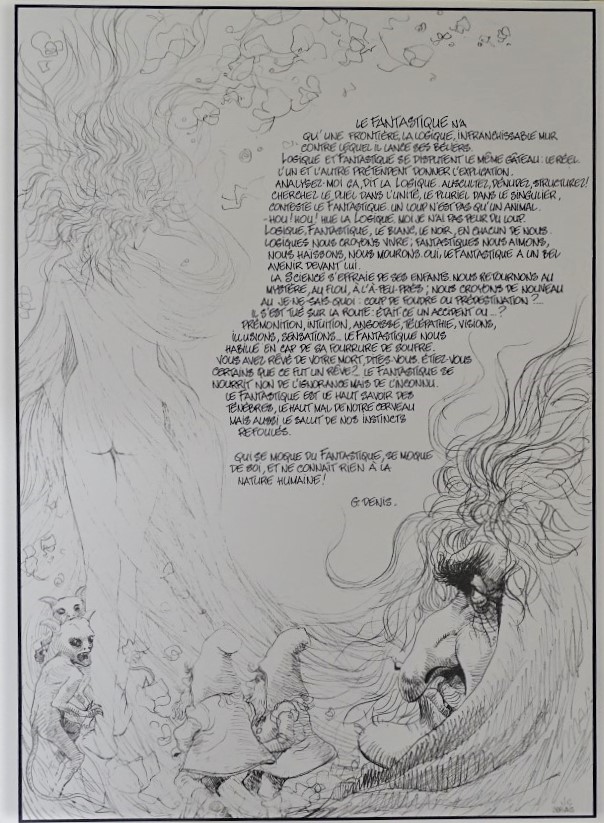 LE FANTASTIQUE N'A
QU'UNE FRONTIÈRE, LA LOGIQUE, INFRANCHISSABLE MUR
CONTRE LEQUEL IL LANCE SES BÉLIERS.
LOGIQUE ET FANTASTIQUE SE DISPUTENT LE MÊME GÂTEAU : LE RÉEL.
L'UN ET L'AUTRE PRÉTENDENT DONNER L'EXPLICATION.
ANALYSEZ-MOI ÇA, DIT LA LOGIQUE. AUSCULTEZ, DÉNUDEZ, STRUCTUREZ!
CHERCHEZ LE DUEL DANS L'UNITÉ, LE PLURIEL DANS LE SINGULIER,
CONTESTE LE FANTASTIQUE. UN LOUP N'EST PAS QU'UN ANIMAL.
-HOU! HOU! HUE LA LOGIQUE. MOI JE N'AI PAS PEUR DU LOUP.
LOGIQUE, FANTASTIQUE, LE BLANC, LE NOIR, EN CHACUN DE NOUS.
LOGIQUES NOUS CROYONS VIVRE ; FANTASTIQUES NOUS AIMONS,
NOUS HAÏSSONS, NOUS MOURONS. OUI, LE FANTASTIQUE A UN BEL
AVENIR DEVANT LUI.
LA SCIENCE S'EFFRAIE DE SES ENFANTS. NOUS RETOURNONS AU
MYSTÈRE, AU FLOU, À L'À-PEU-PRÈS ; NOUS CROYONS DE NOUVEAU
AU JE-NE-SAIS-QUOI : COUP DE FOUDRE OU PRÉDESTINATION ?...
IL S'EST TUÉ SUR LA ROUTE : ÉTAIT CE UN ACCIDENT OU ... ?
PRÉMONITION, INTUITION, ANGOISSE, TÉLÉPATHIE, VISIONS,
ILLUSIONS, SENSATIONS... LE FANTASTIQUE NOUS
HABILLE EN CAP DE SA FOURRURE DE SOUFRE.
VOUS AVEZ RÊVÉ DE VOTRE MORT, DITES-VOUS. ÉTIEZ-VOUS
CERTAINS QUE CE FUT UN RÊVE ?.. LE FANTASTIQUE SE
NOURRIT NON DE L'IGNORANCE MAIS DE L'INCONNU.
LE FANTASTIQUE EST LE HAUT SAVOIR DES
TÉNÈBRES, LE HAUT MAL DE NOTRE CERVEAU
MAIS AUSSI LE SALUT DE NOS INSTINCTS
REFOULÉS.
QUI SE MOQUE DU FANTASTIQUE, SE MOQUE
DE SOI, ET NE CONNAÎT RIEN À LA
NATURE HUMAINE !
G DENIS.